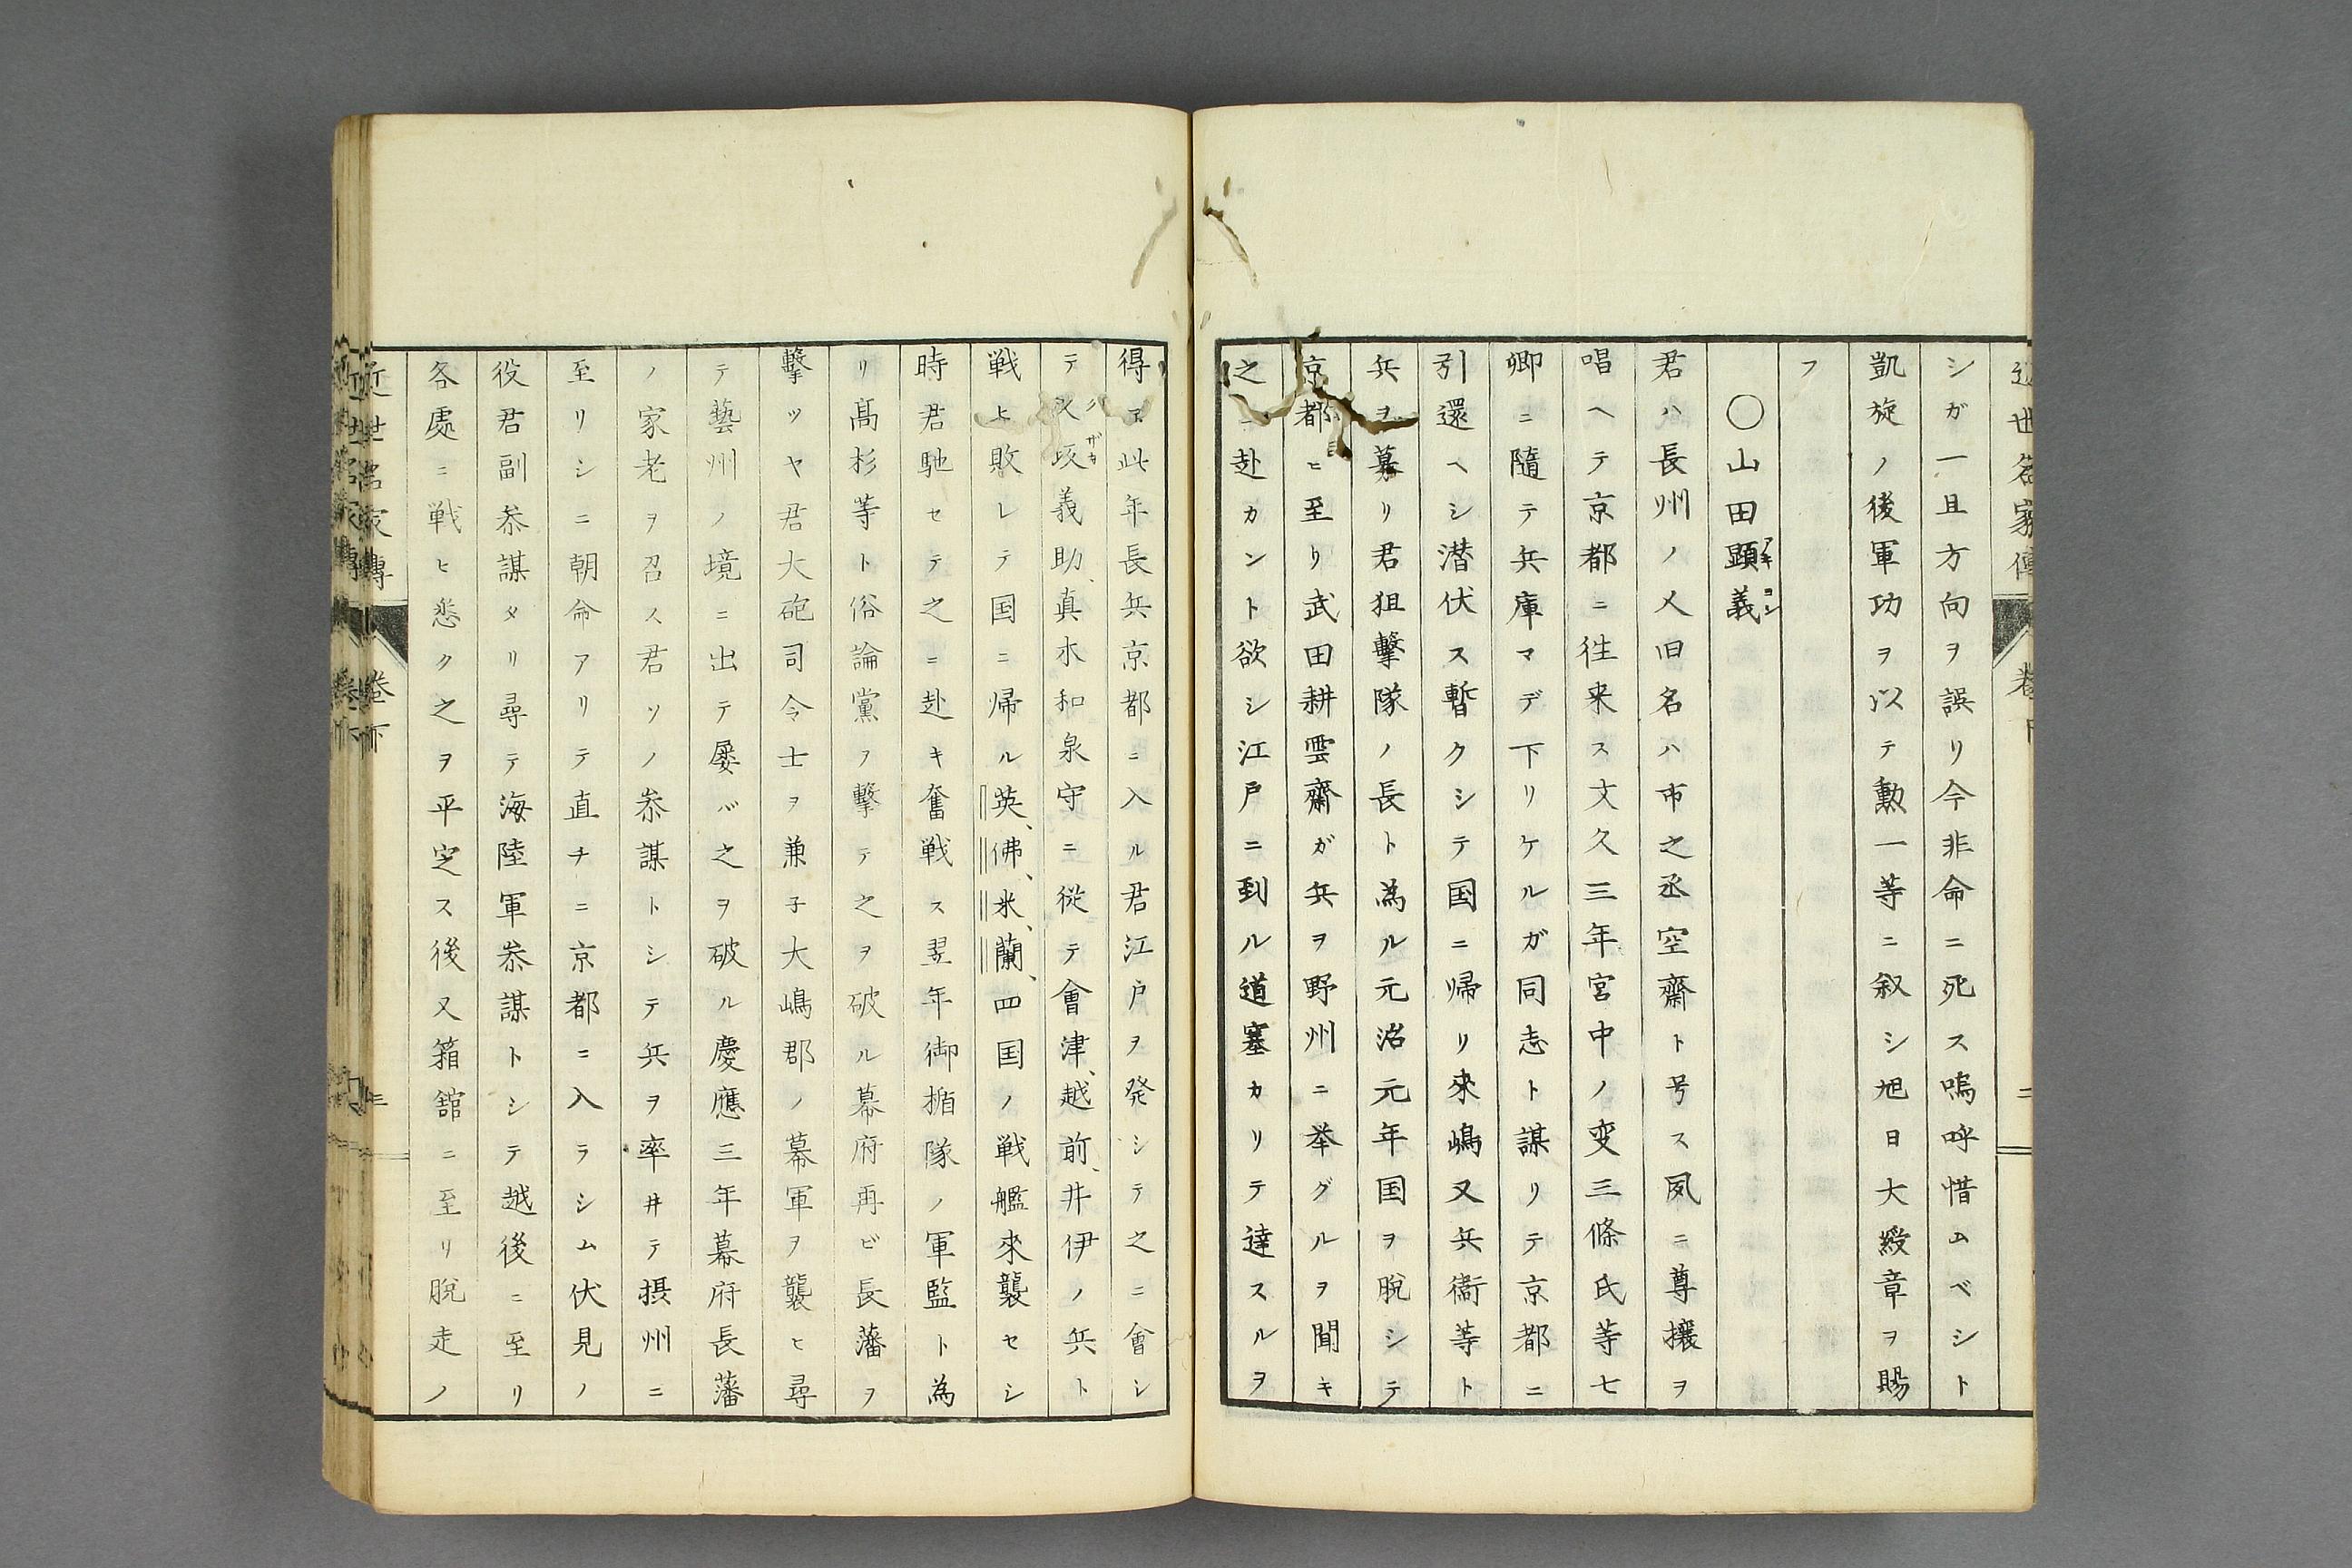 近世名家傳 卷下 二
シガ一旦方向ヲ誤リ今非命ニ死ス嗚呼惜ムベシト
凱旋ノ後軍功ヲ以テ勲一等ニ叙シ旭日大綬章ヲ賜
フ
〇山田顕義アキヨシ
君ハ長州ノ人旧名ハ市之丞空齋ト号ス夙ニ尊攘ヲ
唱ヘテ京都ニ往来ス文久三年宮中ノ変三條氏等七
卿ニ隨テ兵庫マデ下リケルガ同志ト謀リテ京都ニ
引還ヘシ潜伏ス暫クシテ国ニ帰リ來嶋又兵衞等ト
兵ヲ募リ君狙擊隊ノ長ト為ル元治元年国ヲ脱シテ
京都ヒ至リ武田耕雲齋ガ兵ヲ野州ニ举グルヲ聞キ
之ニ赴カント欲シ江戸ニ到ル道塞カリテ達スルヲ
得ズ此年長兵京都ニ入ル君江戸ヲ発シテ之ニ會シ
テ久坂ザカ義助、真木和泉守ニ従テ會津、越前、井伊ノ兵ト
戦ヒ敗レテ国ニ帰ル英、佛、米、蘭、四国ノ戦艦來襲セシ
時君馳セテ之ニ赴キ奮戦ス翌年御楯隊ノ軍監ト為
リ髙杉等ト俗論黨ヲ擊テ之ヲ破ル幕府再ビ長藩ヲ
擊ツヤ君大砲司令士ヲ兼子大嶋郡ノ幕軍ヲ襲ヒ尋
テ藝州ノ境ニ出テ屡バ之ヲ破ル慶應三年幕府長藩
ノ家老ヲ召ス君ソノ叅謀トシテ兵ヲ率井テ摂州ニ
至リシニ朝命アリテ直チニ京都ニ入ラシム伏見ノ
役君副叅謀タリ尋テ海陸軍叅謀トシテ越後ニ至リ
各處ニ戦ヒ悉ク之ヲ平定ス後又箱舘ニ至リ脱走ノ
近世名家傳 卷下 三